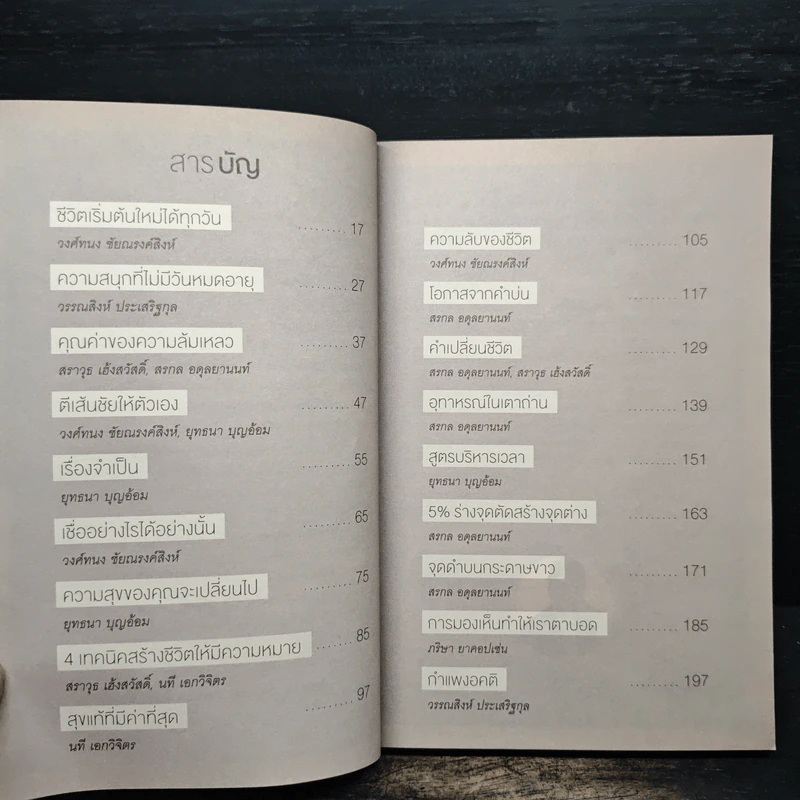 สารบัญ
ชีวิตเริ่มต้นใหม่ได้ทุกวัน ......... 17
วงศ์ทนง ชัยณรงค์สิงห์
ความสนุกที่ไม่มีวันหมดอายุ ......... 27
วรรณสิงห์ ประเสริฐกุล
คุณค่าของความล้มเหลว ......... 37
สราวุธ เฮ้งสวัสดิ์, สรกล อดุลยานนท์
ตีเส้นชัยให้ตัวเอง ......... 47
วงศ์ทนง ชัยณรงค์สิงห์, ยุทธนา บุญอ้อม
เรื่องจำเป็น ......... 55
ยุทธนา บุญอ้อม
เชื่ออย่างไรได้อย่างนั้น ......... 65
วงศ์ทนง ชัยณรงค์สิงห์
ความสุขของคุณจะเปลี่ยนไป ......... 75
ยุทธนา บุญอ้อม
4 เทคนิคสร้างชีวิตให้มีความหมาย ......... 85
สราวุธ เฮ้งสวัสดิ์, นที เอกวิจิตร
สุขแท้ที่มีค่าที่สุด ......... 97
นที เอกวิจิตร
ความลับของชีวิต ......... 105
วงศ์ทนง ชัยณรงค์สิงห์
โอกาสจากคำบ่น ......... 117
สรกล อดุลยานนท์
คำเปลี่ยนชีวิต ......... 129
สรกล อดุลยานนท์, สราวุธ เฮ้งสวัสดิ์
อุทาหรณ์ในเตาถ่าน ......... 139
สรกล อดุลยานนท์
สูตรบริหารเวลา ......... 151
ยุทธนา บุญอ้อม
5% ร่างจุดตัดสร้างจุดต่าง ......... 163
สรกล อดุลยานนท์
จุดดำบนกระดาษขาว ......... 171
สรกล อดุลยานนท์
การมองเห็นทำให้เราตาบอด ......... 185
ภริษา ยาคอปเซ่น
กำแพงอคติ ......... 197
วรรณสิงห์ ประเสริฐกุล